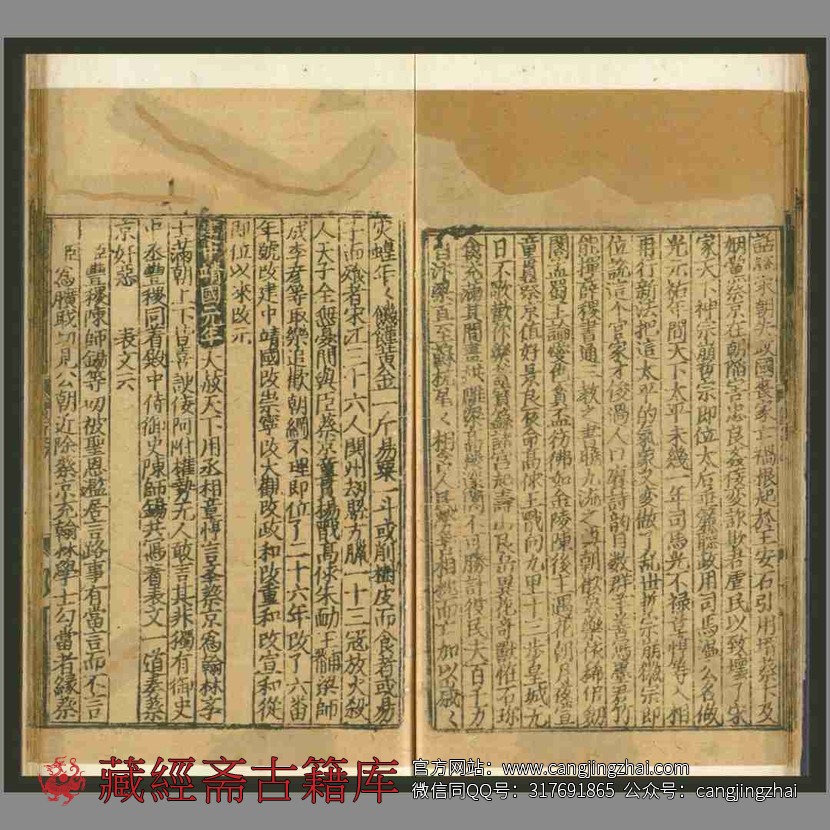 話說宋朝失政國喪家亡禍根起於王安石引用壻蔡卞及
姻黨蔡京在朝陷害忠良姦佞變詐欺君虐民以致壞了宋
家天下神宗崩哲宗即位太后垂簾聽政用司馬溫公名做
光元祐年間天下太平未幾一年司馬光不祿章惇等入相
再行新法把這太平的氣象又變做了亂世哲宗崩徽宗即
位說這个官家才俊過人口賡詩韻目數群羊善寫墨君竹
能揮薛稷書通三教之書曉九流之典朝歡暮樂依稀似劍
閣孟蜀王論愛色貪盃彷彿如金陵陳後主遇花朝月夜宣
童貫蔡京值好景良辰命高俅王戩向九里十三步皇城无
日不歌歡作樂蓋寶籙諸宮起壽山艮岳異花奇獸怪石珍
禽充滿其間畫棟雕梁高樓邃閣不可勝計役民夫百千万
自汴梁直至蘇杭尾々相含人民勞苦相枕而亡加以歲々
災蝗年々饑饉黃金一斤易粟一斗或削樹皮而食者或易
子而飧者宋江三十六人閧州刼縣方臘一十三寇放火殺
人天子全無憂間與臣蔡京童貫楊戩高俅朱動王黼梁師
成李彥等取樂追歡朝綱不理即位了二十六年改了六番
年號改建中靖國改崇寧改大觀改政和改重和改宣和從
即位以來改元
建中靖國元年大赦天下用丞相章惇言舉蔡京為翰林学
士滿朝上下皆喜諛佞阿附權勢无人敢言其非獨有御史
中丞豐稷同着殿中侍御史陳師錫共寫着表文一道奏蔡
京奸惡 表文云
臣豐稷陳師錫等叨被聖恩濫居言路事有當言而不言
臣為曠職切見公朝近除蔡京充翰林學士勾當者緣蔡
藏經斋古籍库
官方网站：www.cangjingzhai.com
微信同QQ号：317691865 公众号：cangjingzhai